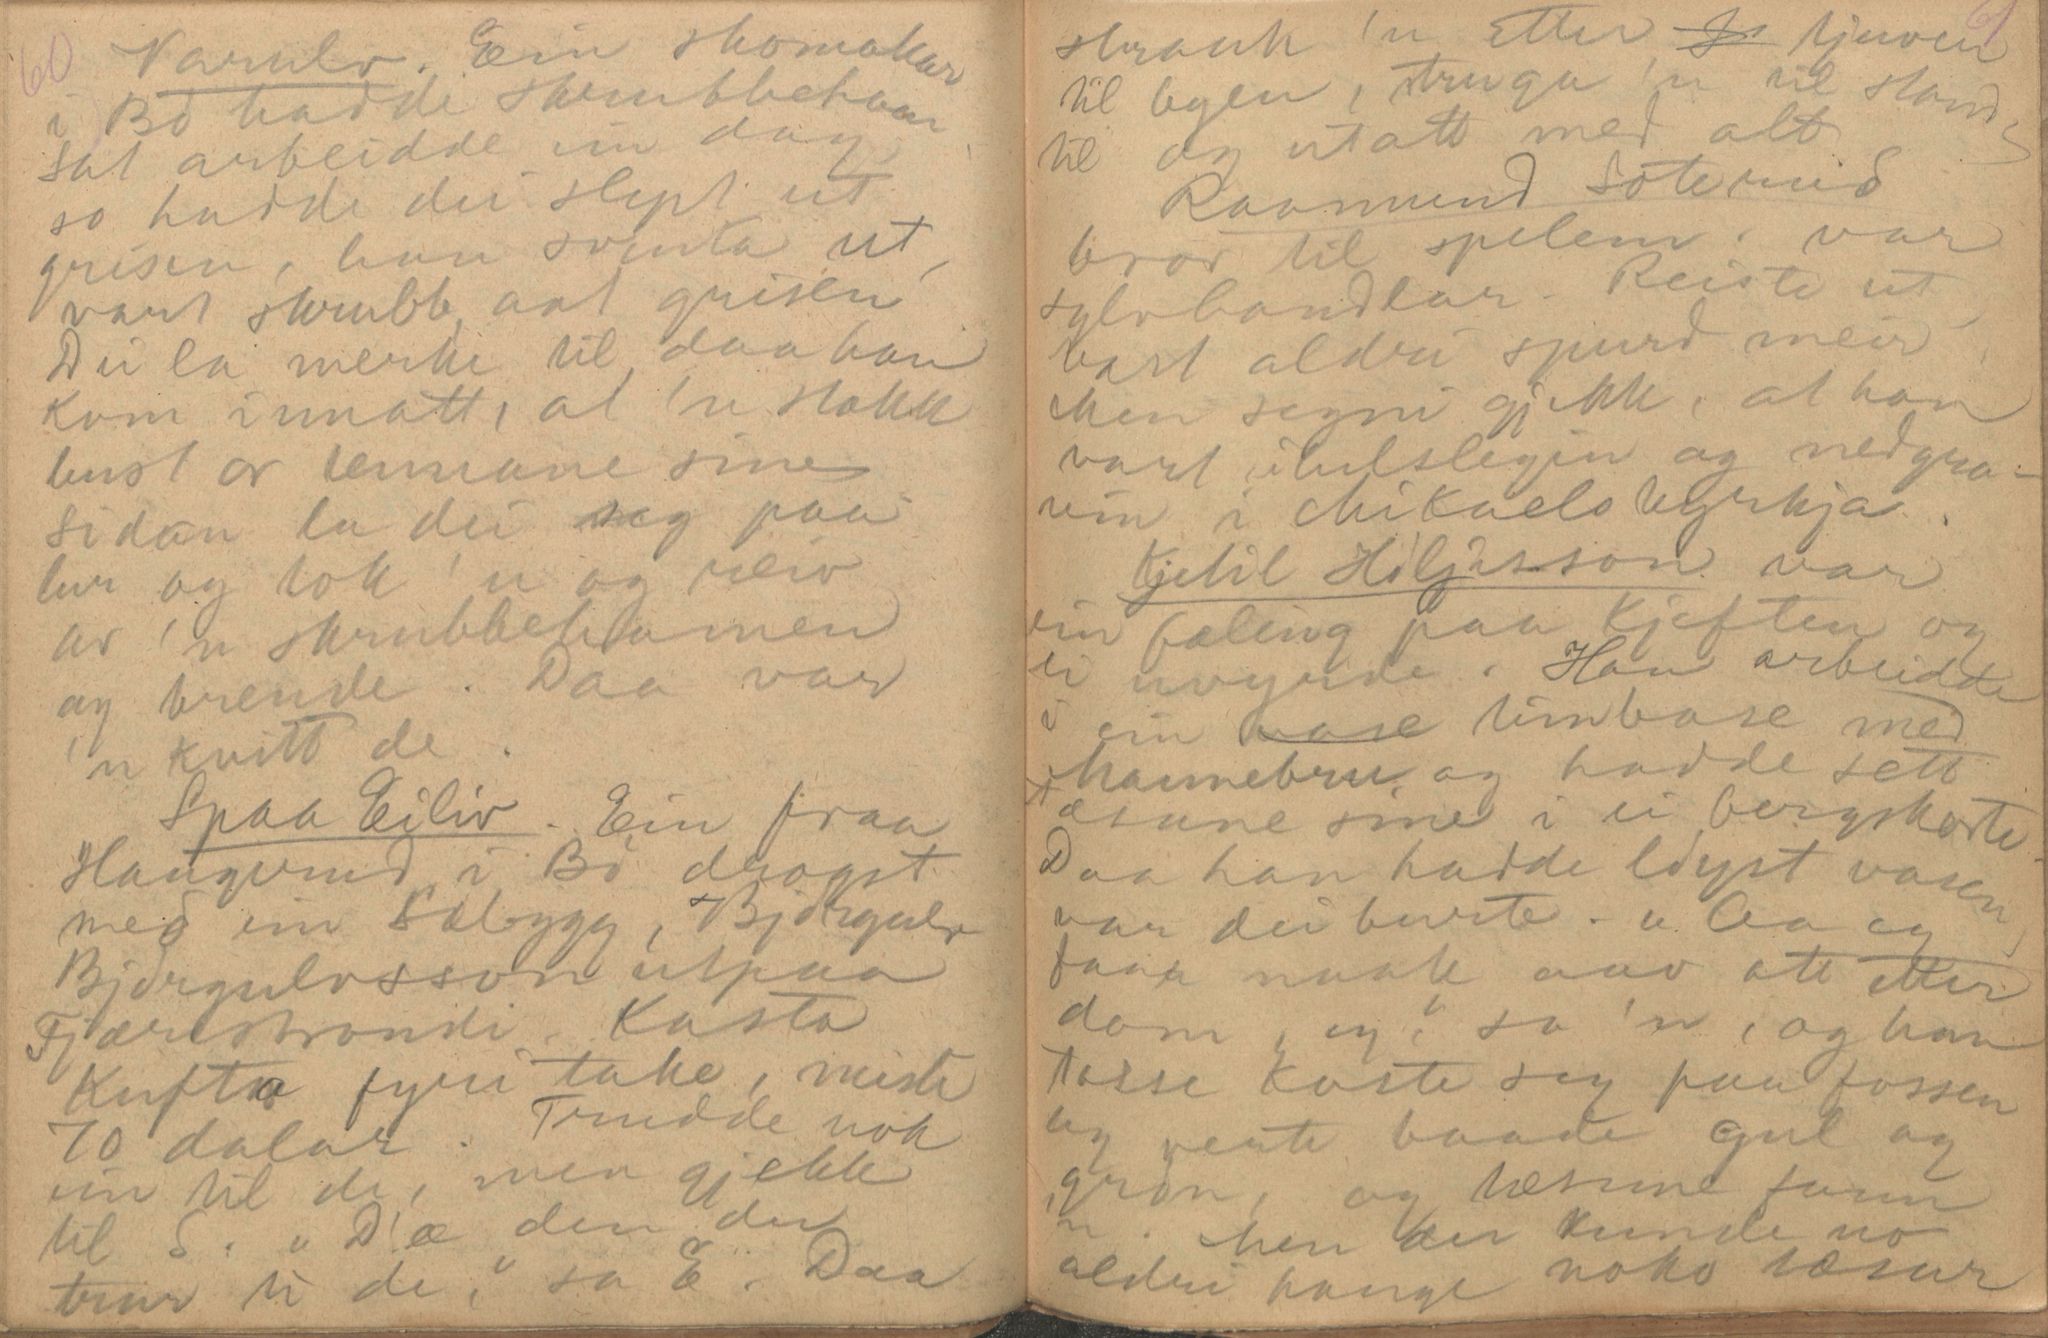 60
Varulv. Ein skomakar
i Bø hadde skrubbeham
sat arbeidde ein dag,
so hadde dei slept ut
grisen, han svinta ut,
vart skrubb, aat grisen
Dei la merke til daa han
kom innatt, at 'n stokk
bust or tennane sine
Sidan la dei seg paa
lur og tok 'n og reiv
av 'n skrubbehamen
og brende. Daa var
'n kvitt de.
Spaa Eiliv. Ein fraa
Haugerud i Bø drogst
med ein Sæbygg, Bjørgulv
Bjørgulvsson utpaa
Fjærestrondi. Kasta
Kufta fyri take, miste
70 dalar. Trudde nok
ein til de, men gjekk
til S. "D'æ den du
trur ti de," sa E. Daa
61
strauk 'n etter tjuven
til byen, truga 'n til stand
til og utatt med alt
Raamund Søterud
bror til spelem. var
sylvhandlar. Reiste ut,
vart aldri spurd meir,
men segni gjekk, at han
vart ihelslegin og nedgra-
vin i Mikaelskyrkja.
Kjetil Hiljusson var
ein fæling paa Kjeften og
ei uvyrde. Han arbeidde
i ein vase timbase med
Kaunebru, og hadde sett
øksane sine i ei bergskorte.
Daa han hadde løyst vasen,
var dei burte. "Aa eg
faar naak aav att etter
dom, eg," sa 'n, og han
torse kaste seg paa fossen
og rente baade gul og
grøn, og høsune faum
'n. Men der kunde no
aldri hange noko høsur